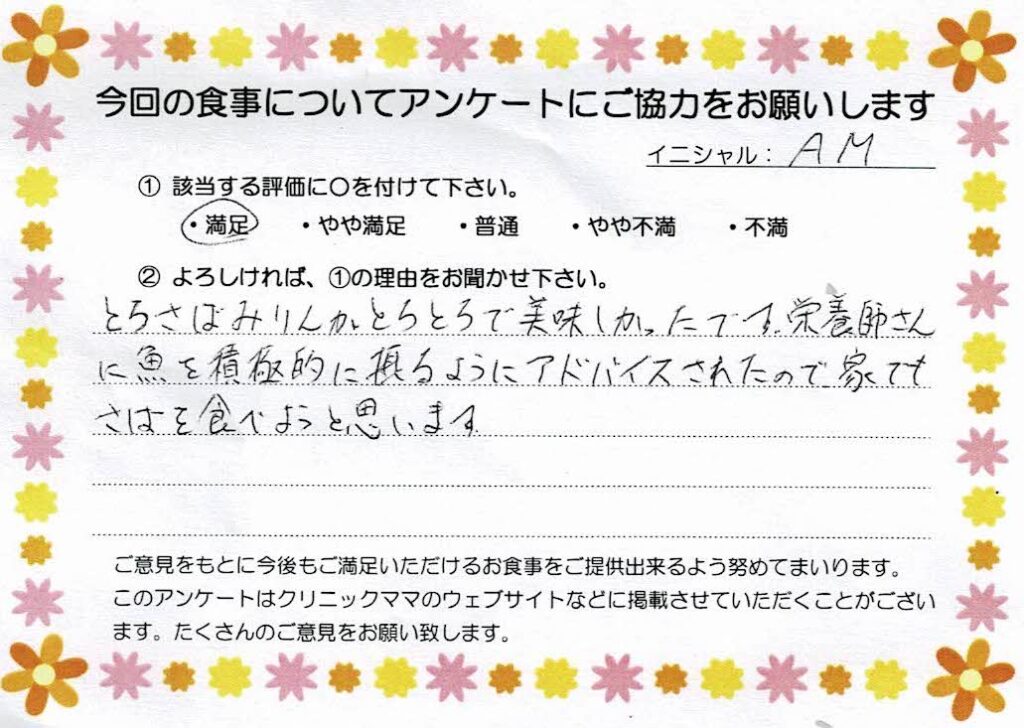 今回の食事についてアンケートにご協力をお願いします
イニシャル： AM
① 該当する評価に〇を付けて下さい。
・満足 ・やや満足 ・普通 ・やや不満 ・不満
② よろしければ、①の理由をお聞かせ下さい。
とろさばみりんがとろとろで美味しかったです。栄養師さん
に魚を積極的に摂るようにアドバイスされたので家でも
さばを食べようと思います
ご意見をもとに今後もご満足いただけるお食事をご提供出来るよう努めてまいります。
このアンケートはクリニックママのウェブサイトなどに掲載させていただくことがござい
ます。たくさんのご意見をお願い致します。